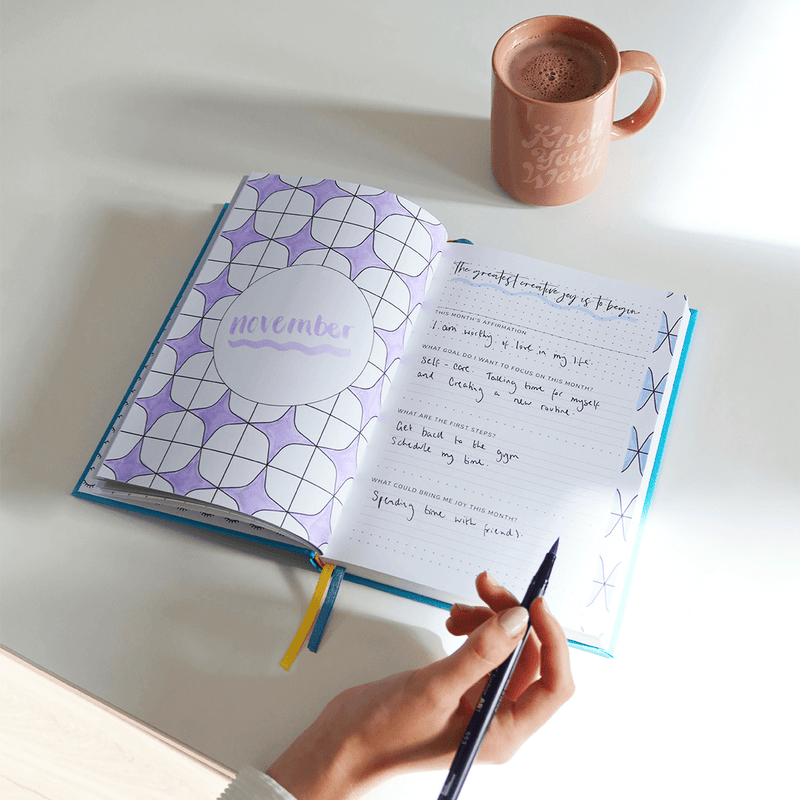 Know
Your
Worth
november
the greatest creative joy is to begin
THIS MONTH'S AFFIRMATION
I am worthy of love in my life.
WHAT GOAL DO I WANT TO FOCUS ON THIS MONTH?
Self-care. Talking time for myself
and Creating a new routine.
WHAT ARE THE FIRST STEPS?
Get back to the gym
Schedule my time.
WHAT COULD BRING ME JOY THIS MONTH?
Spending time with friends.